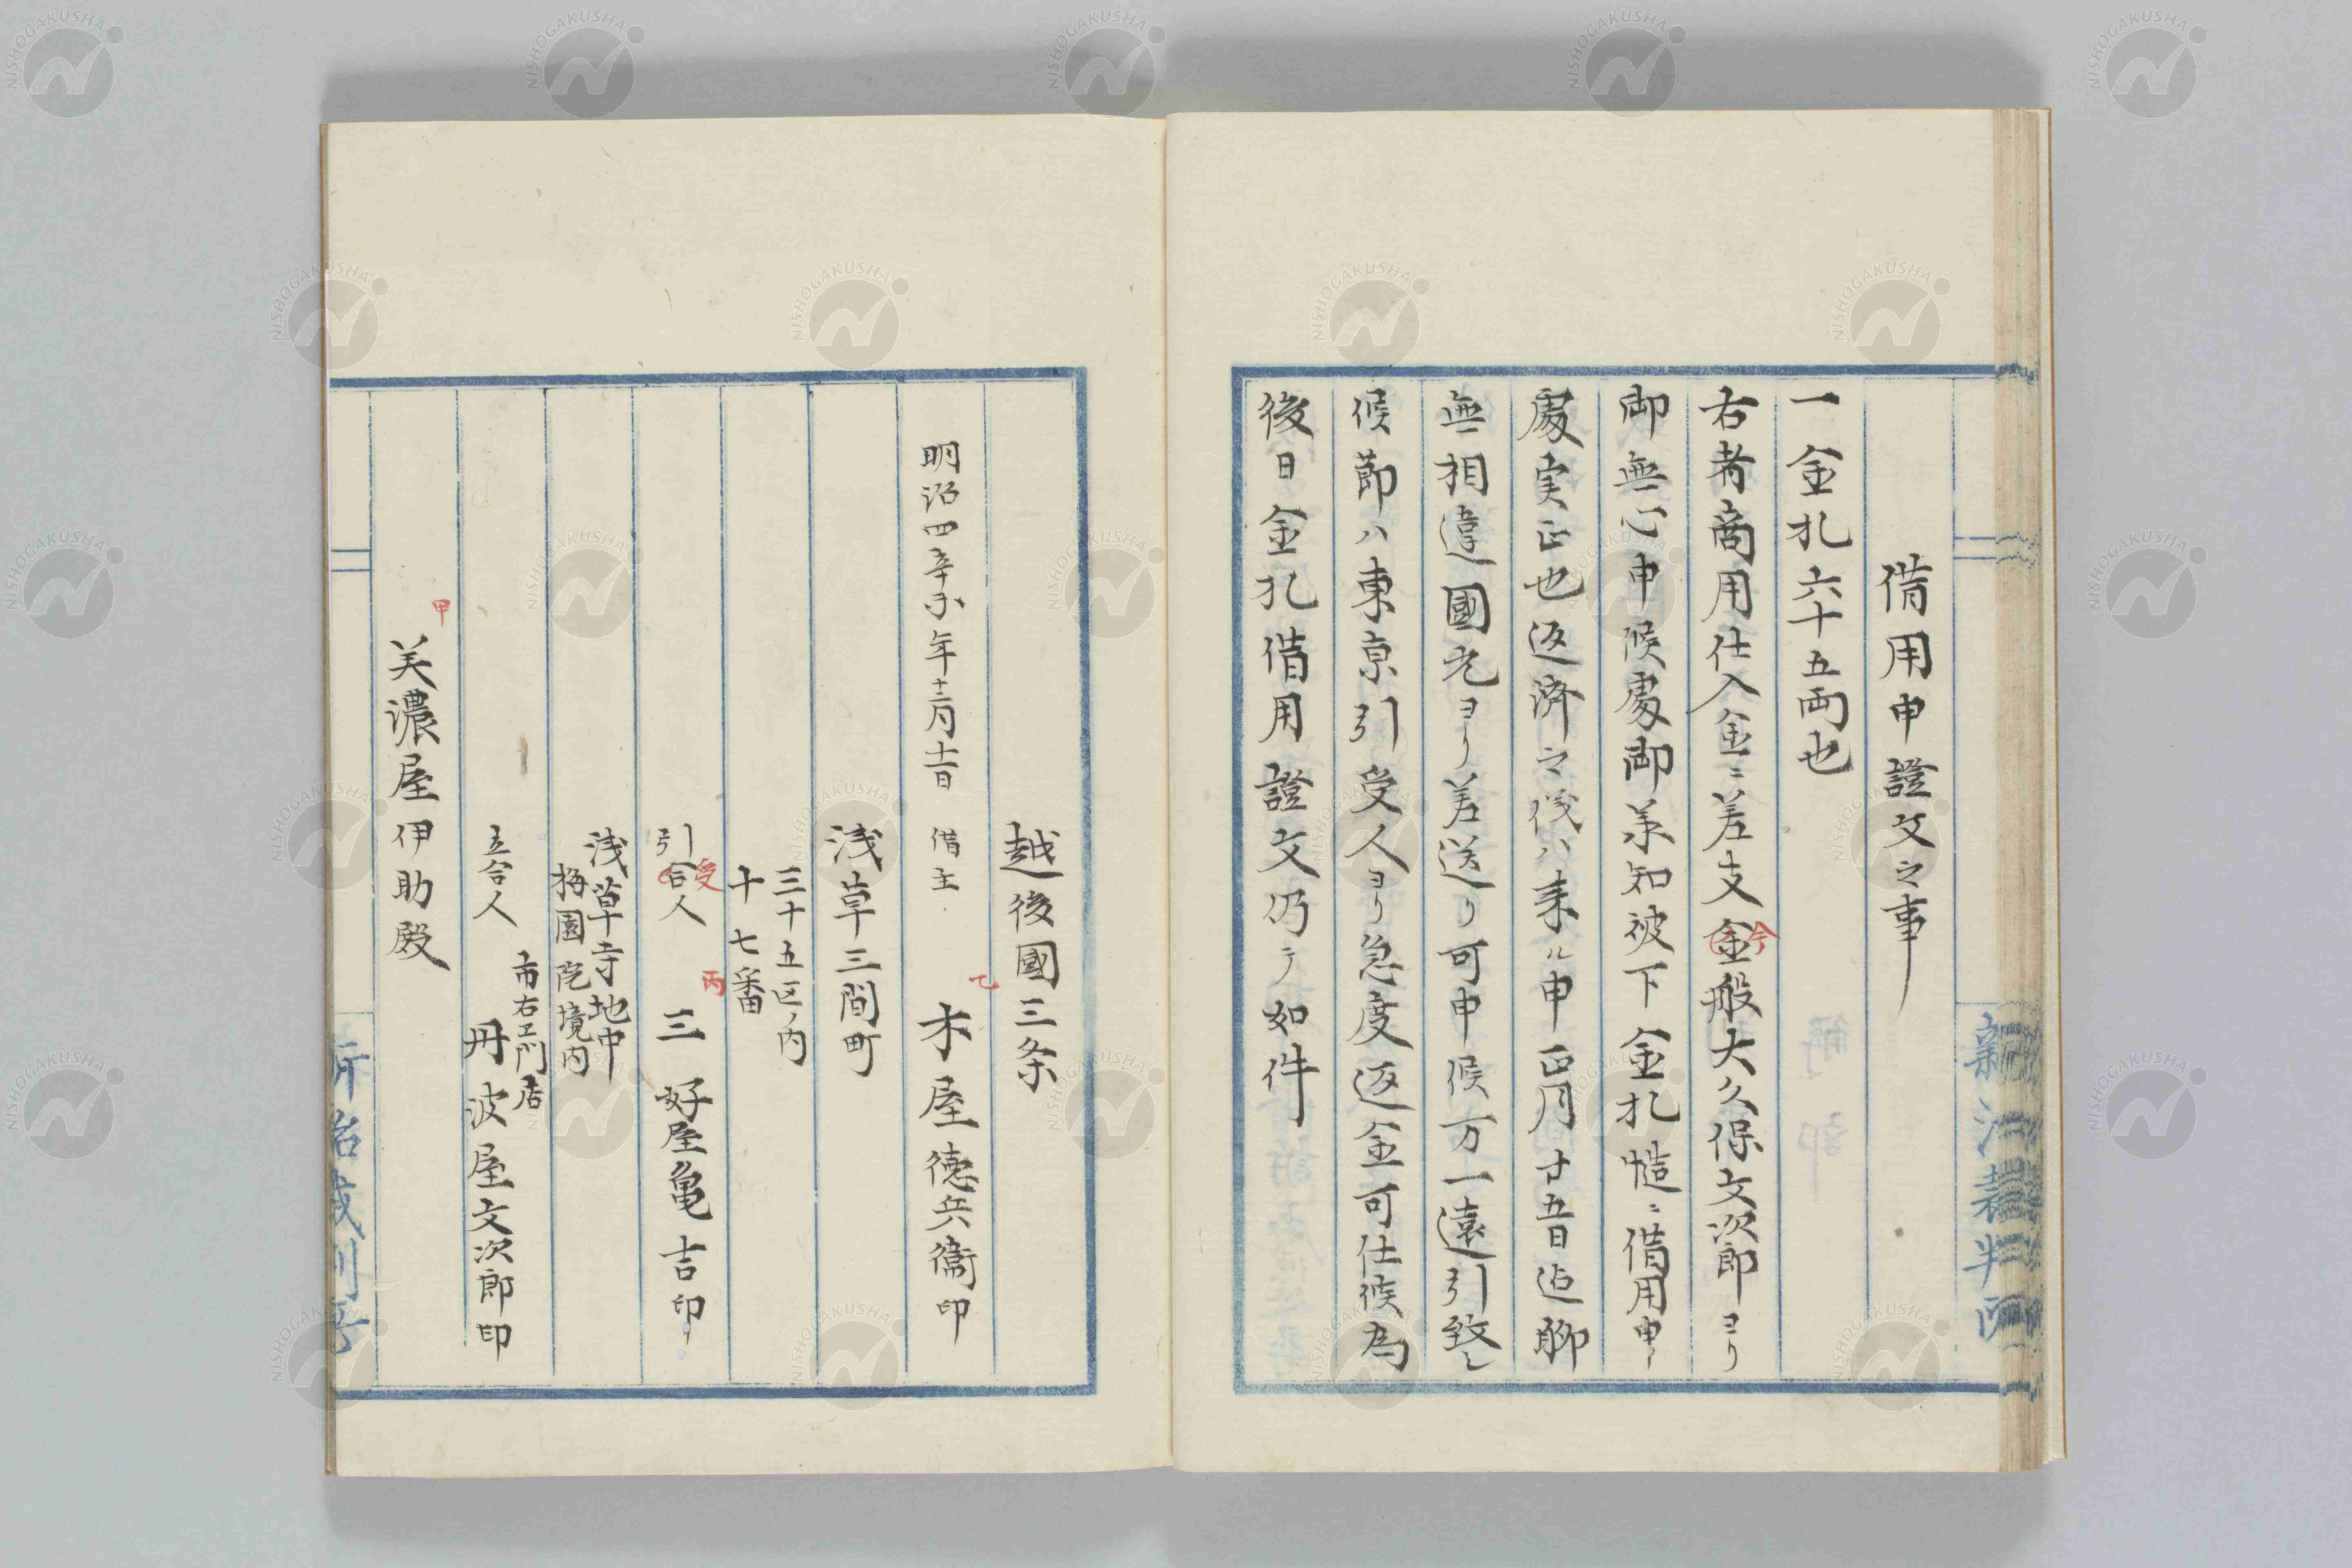 新治裁判所
借用申證文之事
一金札六十五両也
右者商用仕入金ニ差支金今般大久保文次郎ヨリ
御無心申候處御承知被下金札慥ニ借用申
處実正也返済之儀ハ来ル申正月廿五日迠聊
無相違國元ヨリ差送り可申候万一遠引致シ
候節ハ東京引受人ヨリ急度返金可仕候為
後日金札借用證文仍テ如件
越後國三条
明治四辛未年十二月 借主 乙 木屋徳兵衞印
浅草三間町
三十五区ノ内
十七番
引合受人 丙 三好屋亀吉印
浅草寺地中
梅園院境内
市右エ門店
立合人 丹波屋文次郎印
甲
美濃屋伊助殿
新治裁判所
NISHOGAKUSHA